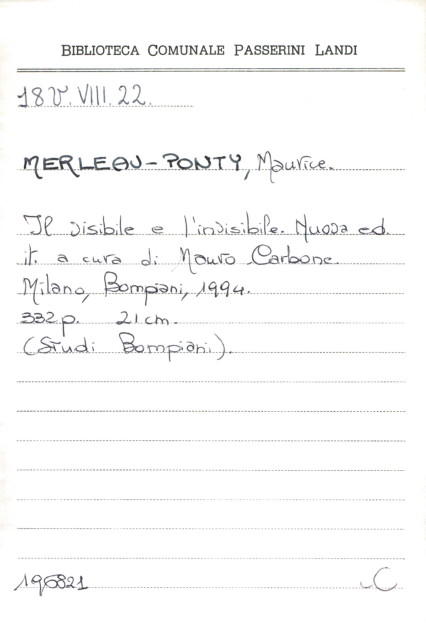 BIBLIOTECA COMUNALE PASSERINI LANDI
18 V. VIII. 22.
MERLEAU-PONTY, Maurice.
Il visibile e l'invisibile. Nuova ed.
it. a cura di Mauro Carbone.
Milano, Bompiani, 1994.
332 p. 21 cm.
(Studi Bompiani).
196821 C